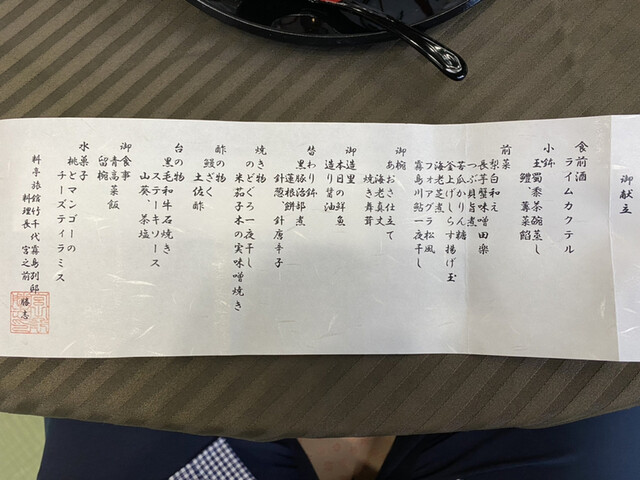 御献立
食前酒
ライムカクテル
小鉢
玉蜀黍茶碗蒸し
鱧、蓴菜餡
前菜
梨白和え
長芋蟹味噌田楽
つぶ貝旨煮
苦瓜かりん糖
釜上げしらす揚げ玉
海老芝煮
フォアグラ松風
霧島川鮎一夜干し
御椀
あおさ仕立て
海老真丈
焼き舞茸
御造里
本日の鮮魚
造り醤油
替わり鉢
黒豚治部煮
蓮根餅
針葱、針唐辛子
焼き物
のどぐろ一夜干し
米茄子木の実味噌焼き
酢の物
鰻ざく
土佐酢
台の物
黒毛和牛石焼き
ステーキソース
山葵、茶塩
御食事
青高菜飯
留椀
水菓子
桃とマンゴーの
チーズティラミス
料亭旅館竹千代霧島別邸
料理長 宮之前 勝志